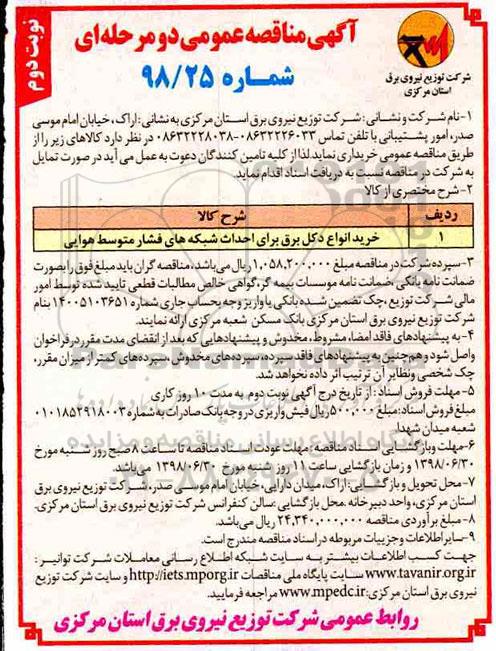 نوبت دوم
آگهی مناقصه عمومی دو مرحله‌ای
شماره ۹۸/۲۵
شرکت توزیع نیروی برق
استان مرکزی
۱- نام شرکت و نشانی: شرکت توزیع نیروی برق استان مرکزی به نشانی: اراک، خیابان امام موسی
صدر، امور پشتیبانی با تلفن تماس ۰۸۶۳۲۲۲۶۰۳۳-۰۸۶۳۲۲۲۸۰۳۸ در نظر دارد کالاهای زیر را از
طریق مناقصه عمومی خریداری نماید لذا از کلیه تامین کنندگان دعوت به عمل می آید در صورت تمایل
به شرکت در مناقصه نسبت به دریافت اسناد اقدام نماید.
۲- شرح مختصری از کالا
ردیف شرح کالا
۱ خرید انواع دکل برق برای احداث شبکه های فشار متوسط هوایی
۳- سپرده شرکت در مناقصه مبلغ ۱,۰۵۸,۲۰۰,۰۰۰ ریال می‌باشد، مناقصه گران باید مبلغ فوق را بصورت
ضمانت نامه بانکی، ضمانت نامه موسسات بیمه گر، گواهی خالص مطالبات قطعی تایید شده توسط امور
مالی شرکت توزیع، چک تضمین شده بانکی یا واریز وجه بحساب جاری شماره ۱۴۰۰۵۱۰۳۶۵۱ بنام
شرکت توزیع نیروی برق استان مرکزی بانک مسکن شعبه مرکزی ارائه نمایند.
۴- به پیشنهادهای فاقد امضا، مشروط، مخدوش و پیشنهادهایی که بعد از انقضای مدت مقرر در فراخوان
واصل شود و هم‌چنین به پیشنهادهای فاقد سپرده، سپرده‌های مخدوش، سپرده‌های کمتر از میزان مقرر،
چک شخصی و نظایر آن ترتیب اثر داده نخواهد شد.
۵- مهلت فروش اسناد: از تاریخ درج آگهی نوبت دوم به مدت ۱۰ روز کاری
مبلغ فروش اسناد: مبلغ ۵۰۰,۰۰۰ ریال فیش واریزی در وجه بانک صادرات به شماره ۰۱۰۱۸۵۲۹۱۸۰۰۳
شعبه میدان شهدا.
۶- مهلت وبازگشایی اسناد مناقصه: مهلت عودت اسناد مناقصه تا ساعت ۸ صبح روز شنبه مورخ
۱۳۹۸/۰۶/۳۰ و زمان بازگشایی ساعت ۱۱ روز شنبه مورخ ۱۳۹۸/۰۶/۳۰ می‌باشد.
۷- محل تحویل و بازگشایی: اراک، میدان دارایی، خیابان امام موسی صدر، شرکت توزیع نیروی برق
استان مرکزی، واحد دبیرخانه. محل بازگشایی: سالن کنفرانس شرکت توزیع نیروی برق استان مرکزی.
۸- مبلغ برآوردی مناقصه ۲۴,۳۴۰,۰۰۰,۰۰۰ ریال می‌باشد.
۹- سایر اطلاعات و جزییات مربوطه در اسناد مناقصه مندرج است.
جهت کسب اطلاعات بیشتر به سایت شبکه اطلاع رسانی معاملات شرکت توانیر:
www.tavanir.org.ir سایت پایگاه ملی مناقصات http://iets.mporg.ir و سایت شرکت توزیع
نیروی برق استان مرکزی: www.mpedc.ir مراجعه فرمایید.
روابط عمومی شرکت توزیع نیروی برق استان مرکزی